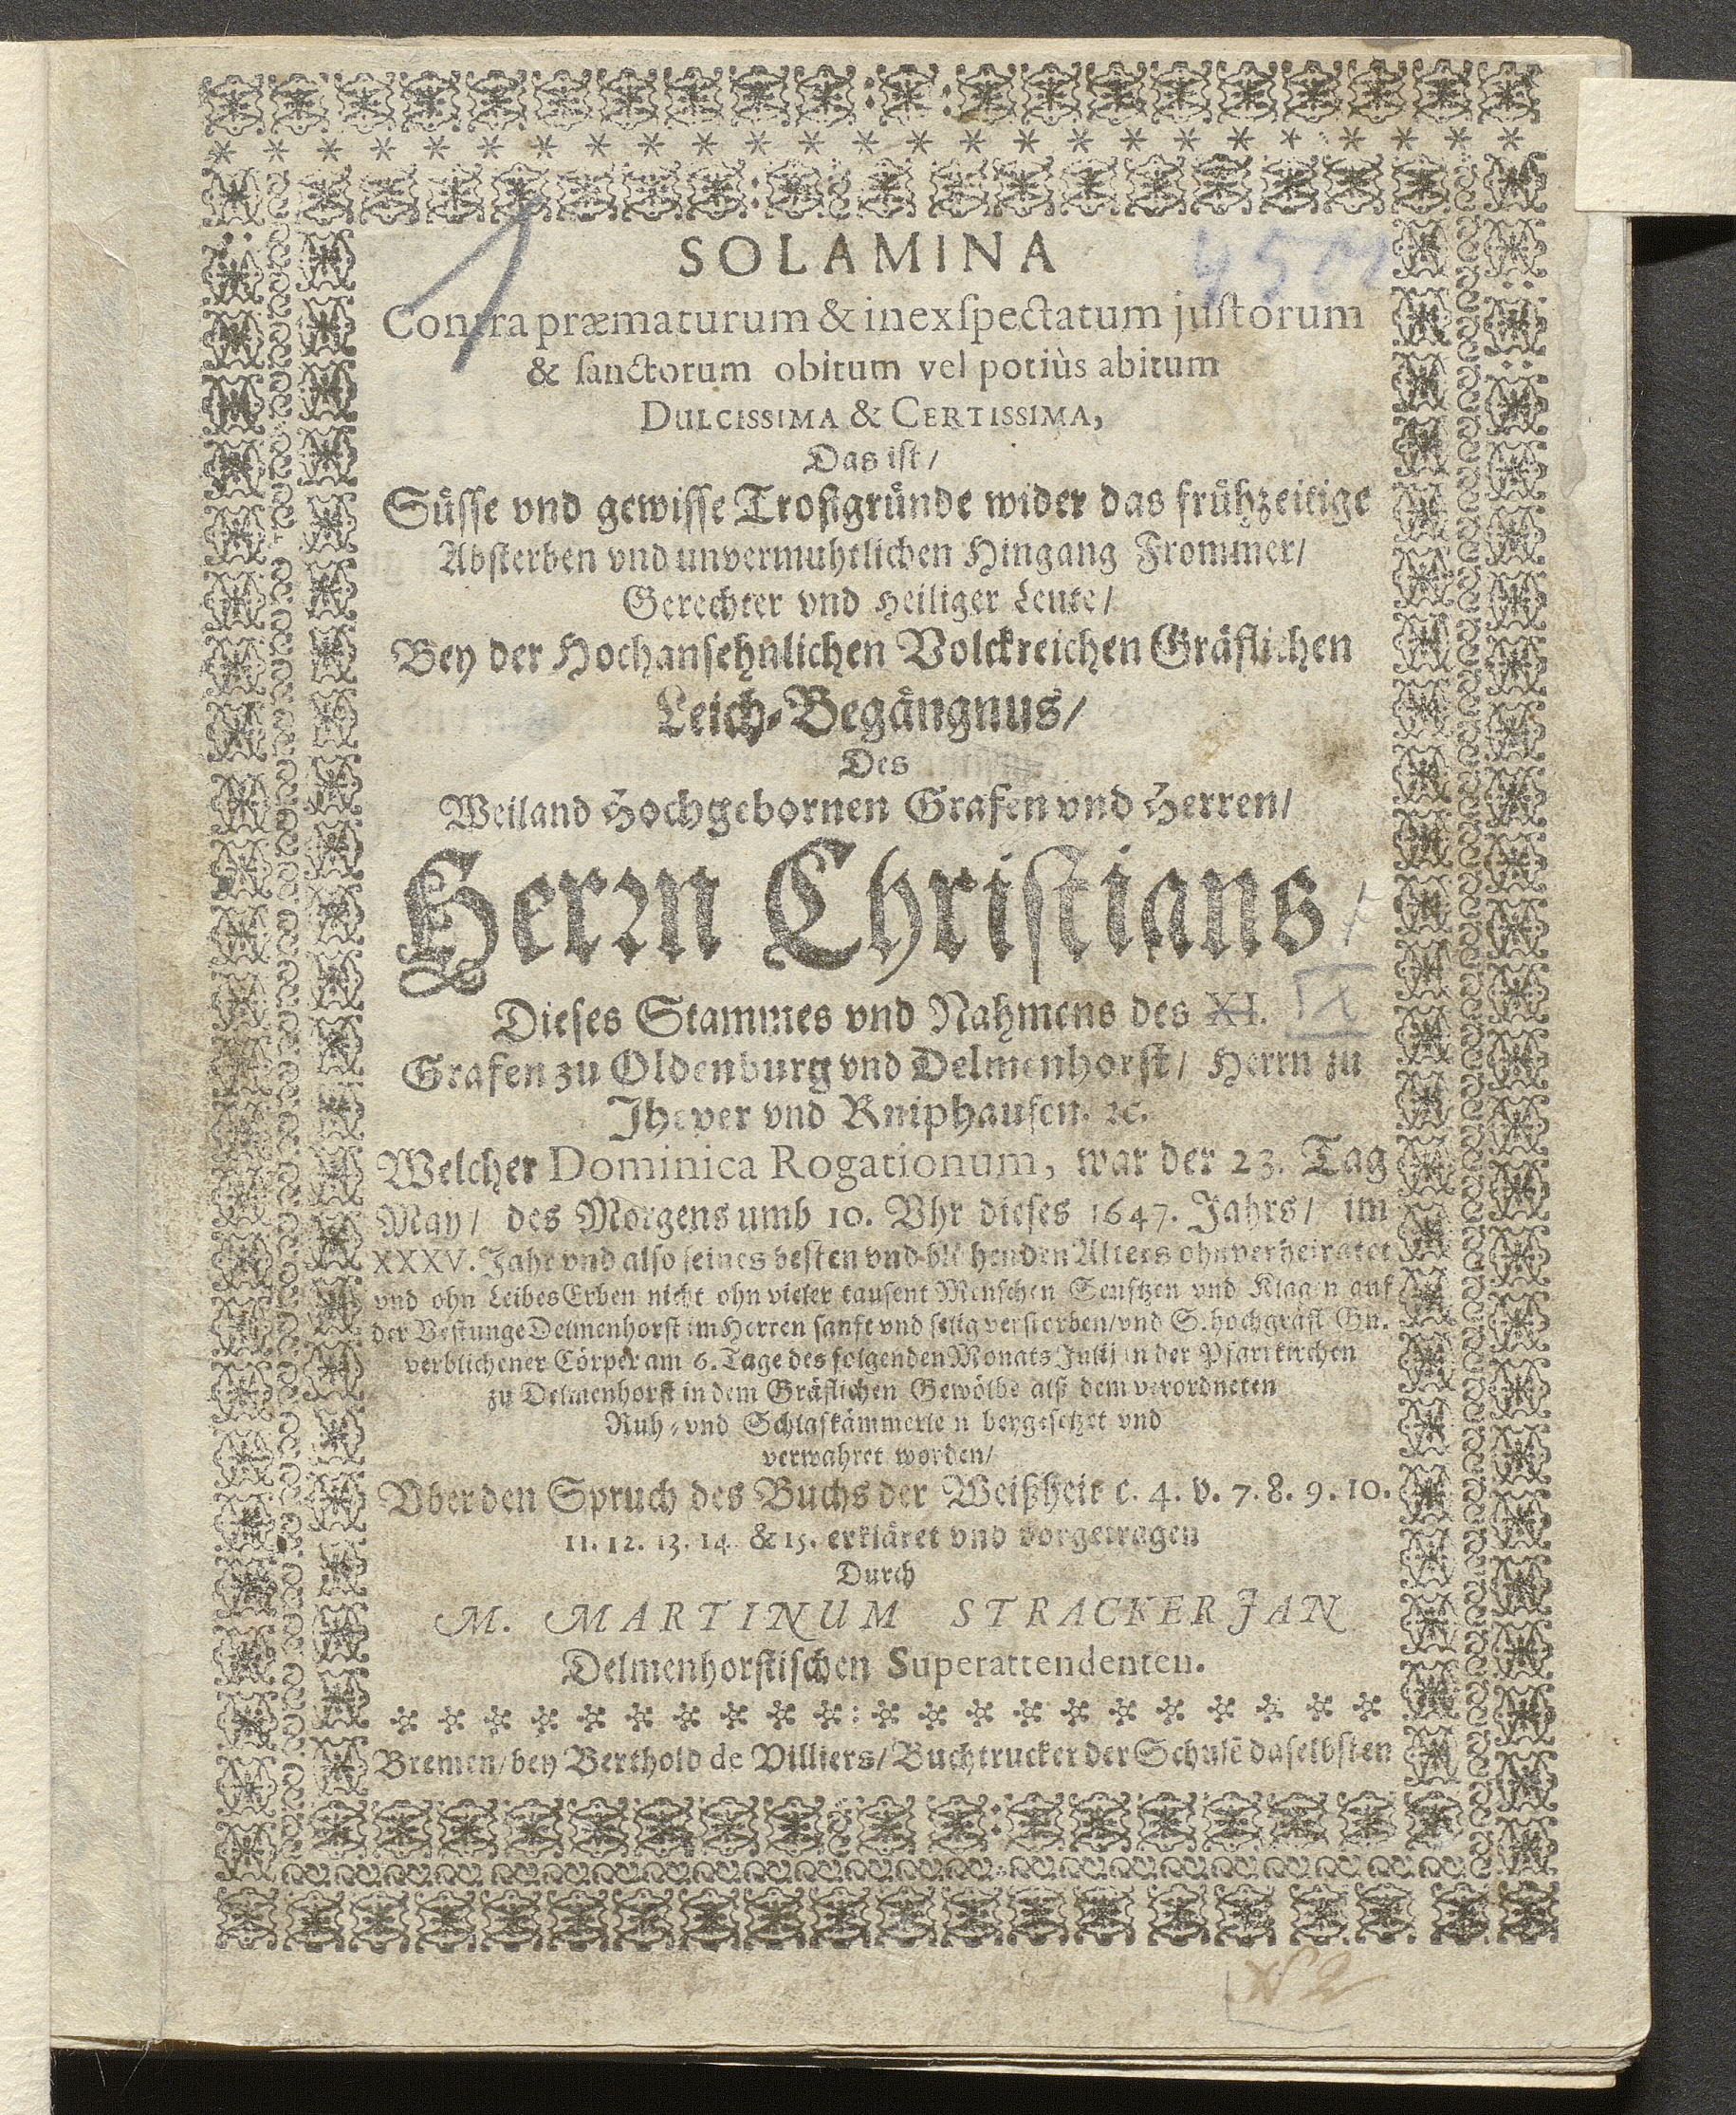 SOLAMINA
Contra præmaturum & inexſpectatum juſtorum
& ſanctorum obitum vel potiùs abitum
DULCISSIMA & CERTISSIMA,
Das iſt/
Süſſe vnd gewiſſe Troſtgründe wider das frühzeitige
Abſterben vnd unvermuhtlichen Hingang Frommer/
Gerechter vnd Heiliger Leute/
Bey der Hochanſehnlichen Volckreichen Gräflichen
Leich-Begängnus/
Des
Weiland Hochgebornen Grafen vnd Herren/
Herrn Chriſtians/
Dieſes Stammes vnd Nahmens des XI. IX
Grafen zu Oldenburg vnd Delmenhorſt/ Herrn zu
Jhever vnd Kniphauſen. ꝛc.
Welcher Dominica Rogationum, war der 23. Tag
May/ des Morgens umb 10. Vhr dieſes 1647. Jahrs/ im
XXXV. Jahr vnd alſo ſeines beſten vnd blühenden Alters ohnverheiratet
vnd ohn Leibes Erben nicht ohn vieler tauſent Menſchen Seuftzen vnd Klagen auf
der Veſtunge Delmenhorſt im Herren ſanft vnd ſelig verſtorben/ vnd S. hochgräfl Gn.
verblichener Cörper am 6. Tage des folgenden Monats Julij in der Pfarrkirchen
zu Delmenhorſt in dem Gräflichen Gewölbe alß dem verordneten
Ruh- vnd Schlafkämmerlein beygeſetzet vnd
verwahret worden/
Vber den Spruch des Buchs der Weißheit c. 4. v. 7. 8. 9. 10.
11. 12. 13. 14. & 15. erkläret vnd vorgetragen
Durch
M. MARTINUM STRACKERJAN
Delmenhorſtiſchen Superattendenten.
Bremen/ bey Berthold de Villiers/ Buchtrucker der Schulē daſelbſten